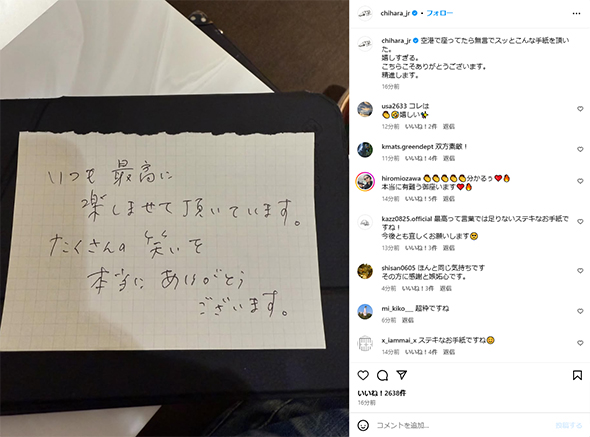 いつも最高に
楽しませて頂いています。
たくさんの笑いを
本当にありがとう
ございます。
chihara_jr • フォロー
chihara_jr 空港で座ってたら無言でスッとこんな手紙を頂いた。
嬉しすぎる。
こちらこそありがとうございます。
精進します。
16分前
usa2633 コレは
嬉しい
12分前 いいね！2件 返信
kmats.greendept 双方素敵！
11分前 いいね！5件 返信
hiromiozawa 分かるぅ
本当に有難う御座います
14分前 いいね！4件 返信
kazz0825.official 最高って言葉では足りないステキなお手紙ですね！
今後とも宜しくお願いします
13分前 いいね！3件 返信
shisan0605 ほんと同じ気持ちです
その方に感謝と嫉妬心です。
4分前 いいね！3件 返信
mi_kiko__ 超粋ですね
6分前 返信
x_iammai_x ステキなお手紙ですね
14分前 いいね！4件 返信
いいね！2638件
16分前
コメントを追加...
投稿する